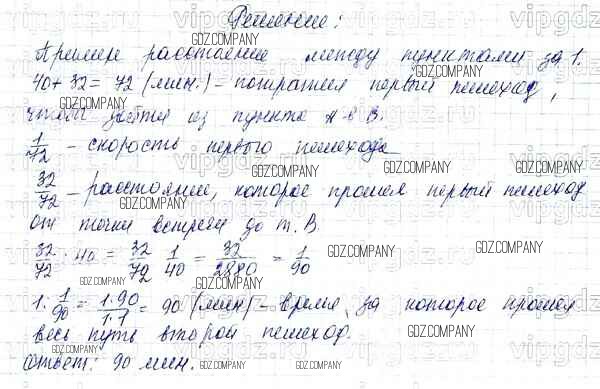 Решение:
Примем расстояние между пунктами за 1.
40+32=72 (мин.) – потратил первый пешеход,
чтобы дойти из пункта А в В.
1/72 – скорость первого пешехода
32/72 – расстояние, которое прошел первый пешеход
от точки встречи до т. В.
32/72 : 40 = 32/72 · 1/40 = 32/2880 = 1/90
1 : 1/90 = 1·90/1·1 = 90 (мин) – время, за которое прошел
весь путь второй пешеход.
Ответ: 90 мин.